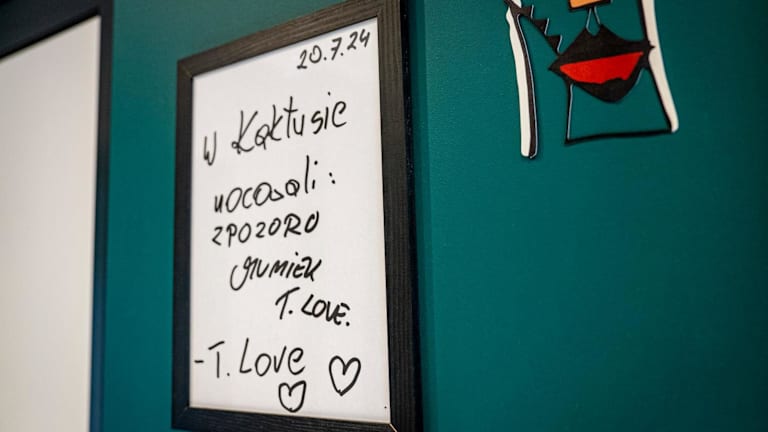 20.7.24
W Kaktusie
nocowali:
ZPOZORO
MUMIEK
T. LOVE.
- T. Love